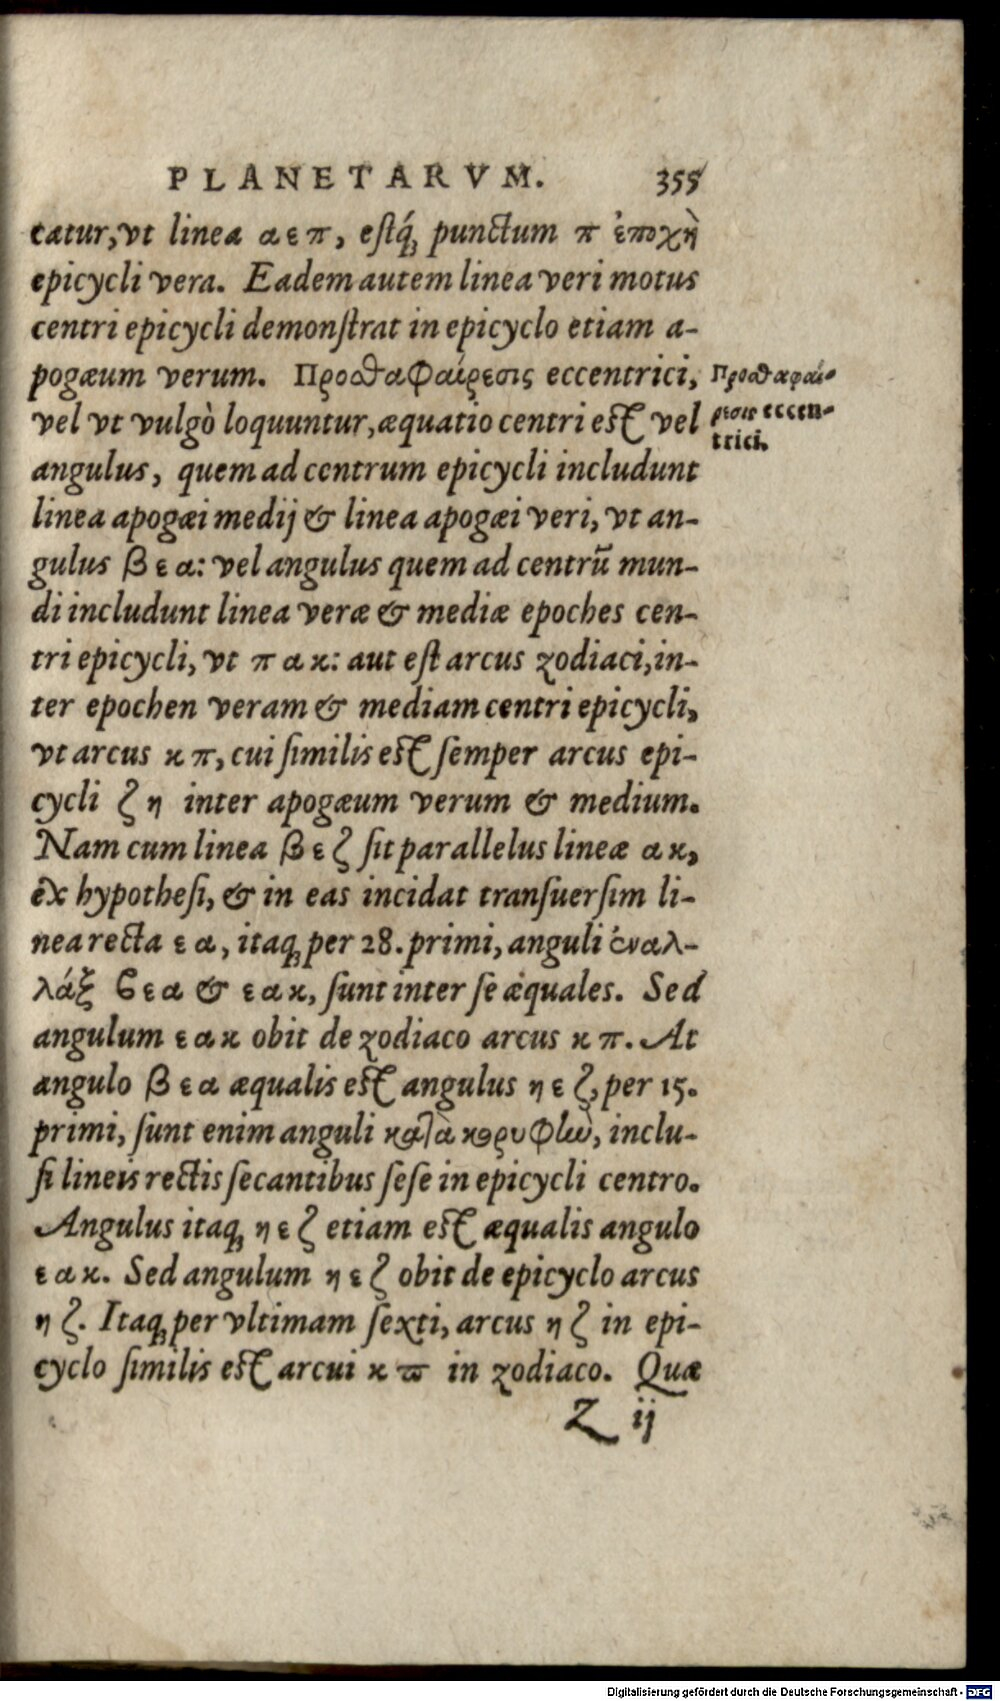 PLANETARVM. 355
tatur, vt linea α ε π, estq́; punctum π ἐποχὴ
epicycli vera. Eadem autem linea veri motus
centri epicycli demonſtrat in epicyclo etiam a-
pogæum verum. Προσθαφαίρεσις eccentrici,
Προσθαφαί-
ρεσις eccen-
trici.
vel vt vulgò loquuntur, æquatio centri est vel
angulus, quem ad centrum epicycli includunt
linea apogæi medij & linea apogæi veri, vt an-
gulus β ε α: vel angulus quem ad centrū mun-
di includunt linea veræ & mediæ epoches cen-
tri epicycli, vt π α κ: aut eſt arcus zodiaci, in-
ter epochen veram & mediam centri epicycli,
vt arcus κ π, cui ſimilis est ſemper arcus epi-
cycli ζ η inter apogæum verum & medium.
Nam cum linea β ε ζ ſit parallelus lineæ α κ,
ex hypotheſi, & in eas incidat tranſuerſim li-
nea recta ε α, itaq; per 28. primi, anguli ἐναλ-
λάξ ϐ ε α & ε α κ, ſunt inter ſe æquales. Sed
angulum ε α κ obit de zodiaco arcus κ π. At
angulo β ε α æqualis est angulus η ε ζ, per 15.
primi, ſunt enim anguli κατὰ κορυφὼ, inclu-
ſi lineis rectis ſecantibus ſeſe in epicycli centro.
Angulus itaq; η ε ζ etiam est æqualis angulo
ε α κ. Sed angulum η ε ζ obit de epicyclo arcus
η ζ. Itaq; per vltimam ſexti, arcus η ζ in epi-
cyclo ſimilis est arcui κ ϖ in zodiaco. Quæ
Z ij
Digitalisierung gefördert durch die Deutsche Forschungsgemeinschaft - DFG